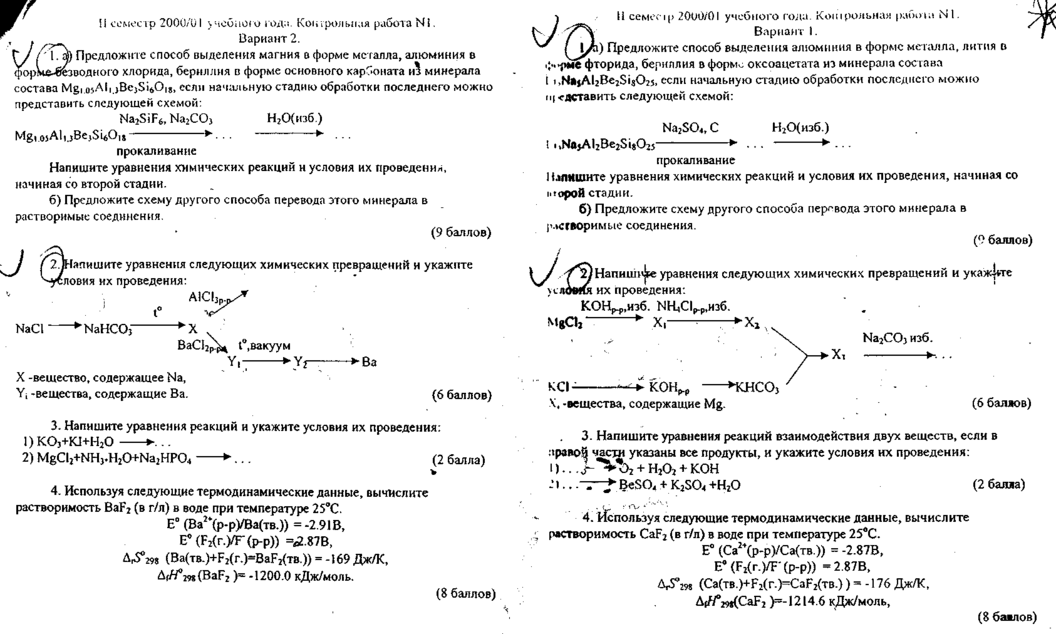 II семестр 2000/01 учебного года. Контрольная работа N1.
Вариант 2.
1. а) Предложите способ выделения магния в форме металла, алюминия в
форме безводного хлорида, бериллия в форме основного карбоната из минерала
состава Mg₁.₀₅Al₁,₃Be₃Si₆O₁₈, если начальную стадию обработки последнего можно
представить следующей схемой:
Na₂SiF₆, Na₂CO₃ H₂O(изб.)
Mg₁.₀₅Al₁,₃Be₃Si₆O₁₈ ⟶ ... ⟶ ...
прокаливание
Напишите уравнения химических реакций и условия их проведения,
начиная со второй стадии.
б) Предложите схему другого способа перевода этого минерала в
растворимые соединения.
(9 баллов)
2. Напишите уравнения следующих химических превращений и укажите
условия их проведения:
AlCl₃р-р
t°
NaCl ⟶ NaHCO₃ ⟶ X
BaCl₂р-р t°,вакуум
Y₁ ⟶ Y₂ ⟶ Ba
X -вещество, содержащее Na,
Yᵢ -вещества, содержащие Ba. (6 баллов)
3. Напишите уравнения реакций и укажите условия их проведения:
1) KO₃+KI+H₂O ⟶ ...
2) MgCl₂+NH₃·H₂O+Na₂HPO₄ ⟶ ... (2 балла)
4. Используя следующие термодинамические данные, вычислите
растворимость BaF₂ (в г/л) в воде при температуре 25°С.
E° (Ba²⁺(р-р)/Ba(тв.)) = -2.91В,
E° (F₂(г.)/F⁻(р-р)) =2.87В,
ΔᵣS°₂₉₈ (Ba(тв.)+F₂(г.)=BaF₂(тв.)) = -169 Дж/К,
ΔfH°₂₉₈(BaF₂ )= -1200.0 кДж/моль.
(8 баллов)
II семестр 2000/01 учебного года. Контрольная работа N1.
Вариант 1.
1. а) Предложите способ выделения алюминия в форме металла, лития в
форме фторида, бериллия в форме оксоацетата из минерала состава
Na₅Al₂Be₂Si₈O₂₅, если начальную стадию обработки последнего можно
представить следующей схемой:
Na₂SO₄, C H₂O(изб.)
Na₅Al₂Be₂Si₈O₂₅ ⟶ ... ⟶ ...
прокаливание
Напишите уравнения химических реакций и условия их проведения, начиная со
второй стадии.
б) Предложите схему другого способа перевода этого минерала в
растворимые соединения.
(9 баллов)
2. Напишите уравнения следующих химических превращений и укажите
условия их проведения:
KOHр-р,изб. NH₄Clр-р,изб.
MgCl₂ ⟶ X₁ ⟶ X₂
Na₂CO₃ изб.
X₃ ⟶ ...
KCl ⟶ KOHр-р ⟶ KHCO₃
Xᵢ -вещества, содержащие Mg. (6 баллов)
3. Напишите уравнения реакций взаимодействия двух веществ, если в
правой части указаны все продукты, и укажите условия их проведения:
1) ... ⟶ O₂ + H₂O₂ + KOH
2) ... ⟶ BeSO₄ + K₂SO₄ +H₂O (2 балла)
4. Используя следующие термодинамические данные, вычислите
растворимость CaF₂ (в г/л) в воде при температуре 25°С.
E° (Ca²⁺(р-р)/Ca(тв.)) = -2.87В,
E° (F₂(г.)/F⁻(р-р)) = 2.87В,
ΔᵣS°₂₉₈ (Ca(тв.)+F₂(г.)=CaF₂(тв.) ) = -176 Дж/К,
ΔfH°₂₉₈(CaF₂ )=-1214.6 кДж/моль,
(8 баллов)